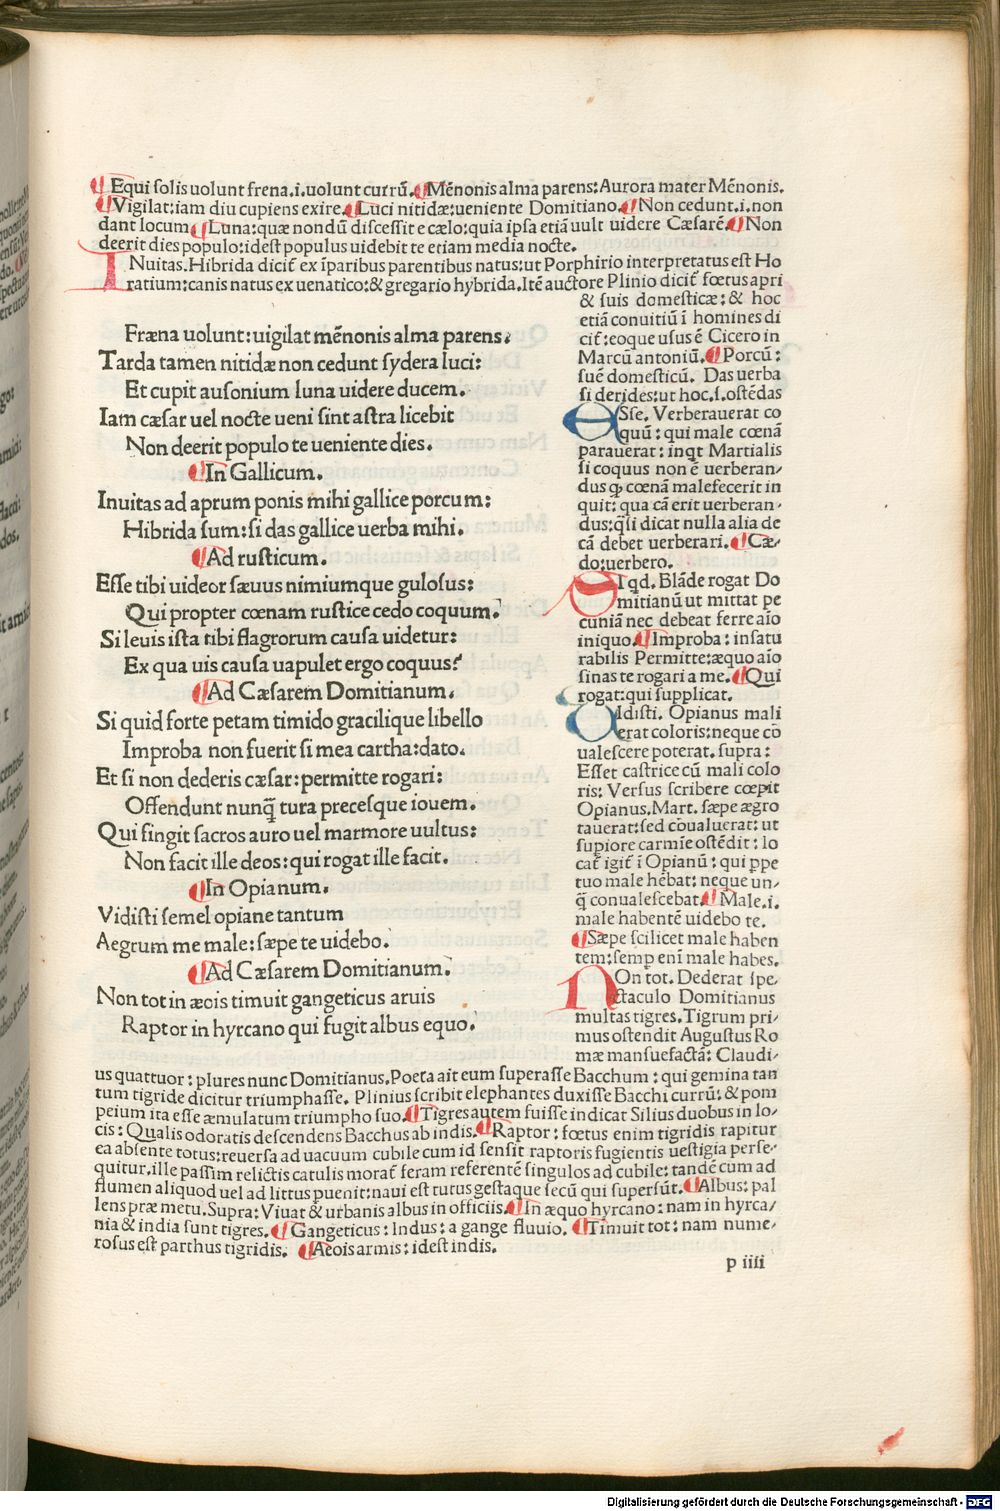 ¶Equi solis uolunt frena.i.uolunt currũ.¶Mẽnonis alma parens:Aurora mater Mẽnonis.
¶Vigilat:iam diu cupiens exire.¶Luci nitidæ:ueniente Domitiano.¶Non cedunt.i.non
dant locum¶Luna:quæ nondũ discessit e cælo:quia ipsa etiã uult uidere Cæsarẽ.¶Non
deerit dies populo:idest populus uidebit te etiam media nocte.
INuitas.Hibrida dicit̃ ex ĩparibus parentibus natus:ut Porphirio interpretatus est Ho
ratium:canis natus ex uenatico:& gregario hybrida.Itẽ auctore Plinio dicit̃ fœtus apri
& suis domesticæ:& hoc
etiã conuitiũ ĩ homines di
cit̃:eoque usus ẽ Cicero in
Marcũ antoniũ.¶Porcũ:
suẽ domesticũ. Das uerba
si derides:ut hoc.s.ostẽdas
ESse. Verberauerat co
quũ: qui male cœnã
parauerat: inqt Martialis
si coquus non ẽ uerberan/
dus ꝙ cœnã malefecerit in
quit: qua cã erit uerberan/
dus:q̃si dicat nulla alia de
cã debet uerberari.¶Cæ/
do:uerbero.
SIqd. Blãde rogat Do
mitianũ ut mittat pe
cuniã nec debeat ferre aĩo
iniquo.¶Improba: insatu
rabilis Permitte:æquo aĩo
sinas te rogari a me.¶Qui
rogat:qui supplicat.
VIdisti. Opianus mali
erat coloris:neque cõ
ualescere poterat. supra:
Esset castrice cũ mali colo
ris: Versus scribere cœpit
Opianus.Mart. sæpe ægro
tauerat:sed cõualuerat: ut
supiore carmie ostẽdit: lo
cat̃ igit̃ ĩ Opianũ: qui ppe
tuo male hẽbat: neque un/
q̃ conualescebat.¶Male.i.
male habentẽ uidebo te.
¶Sæpe scilicet male haben
tem:semp enĩ male habes.
NOn tot. Dederat spe/
ctaculo Domitianus
multas tigres.Tigrum pri/
mus ostendit Augustus Ro
mæ mansuefactã: Claudi/
Fræna uolunt:uigilat mẽnonis alma parens.
Tarda tamen nitidæ non cedunt sydera luci:
Et cupit ausonium luna uidere ducem.
Iam cæsar uel nocte ueni sint astra licebit
Non deerit populo te ueniente dies.
¶In Gallicum.
Inuitas ad aprum ponis mihi gallice porcum:
Hibrida sum:si das gallice uerba mihi.
¶Ad rusticum.
Esse tibi uideor sæuus nimiumque gulosus:
Qui propter cœnam rustice cedo coquum.
Si leuis ista tibi flagrorum causa uidetur:
Ex qua uis causa uapulet ergo coquus?
¶Ad Cæsarem Domitianum.
Si quid forte petam timido gracilique libello
Improba non fuerit si mea cartha:dato.
Et si non dederis cæsar:permitte rogari:
Offendunt nunq̃ tura precesque iouem.
Qui fingit sacros auro uel marmore uultus:
Non facit ille deos:qui rogat ille facit.
¶In Opianum.
Vidisti semel opiane tantum
Aegrum me male:sæpe te uidebo.
¶Ad Cæsarem Domitianum.
Non tot in æois timuit gangeticus aruis
Raptor in hyrcano qui fugit albus equo.
us quattuor: plures nunc Domitianus.Poeta ait eum superasse Bacchum: qui gemina tan
tum tigride dicitur triumphasse. Plinius scribit elephantes duxisse Bacchi currũ: & pom
peium ita esse æmulatum triumpho suo.¶Tigres autem fuisse indicat Silius duobus in lo/
cis: Qualis odoratis descendens Bacchus ab indis.¶Raptor: fœtus enim tigridis rapitur
ea absente totus:reuersa ad uacuum cubile cum id sensit raptoris fugientis uestigia perse/
quitur.ille passim relictis catulis morat̃ feram referentẽ singulos ad cubile: tandẽ cum ad
flumen aliquod uel ad littus puenit:naui est tutus gestaque secũ qui supersũt.¶Albus: pal
lens præ metu.Supra: Viuat & urbanis albus in officiis.¶In æquo hyrcano: nam in hyrca/
nia & india sunt tigres.¶Gangeticus: Indus: a gange fluuio. ¶Timuit tot: nam nume/
rosus est parthus tigridis. ¶Aeois armis: idest indis.
p iiii
Digitalisierung gefördert durch die Deutsche Forschungsgemeinschaft - DFG